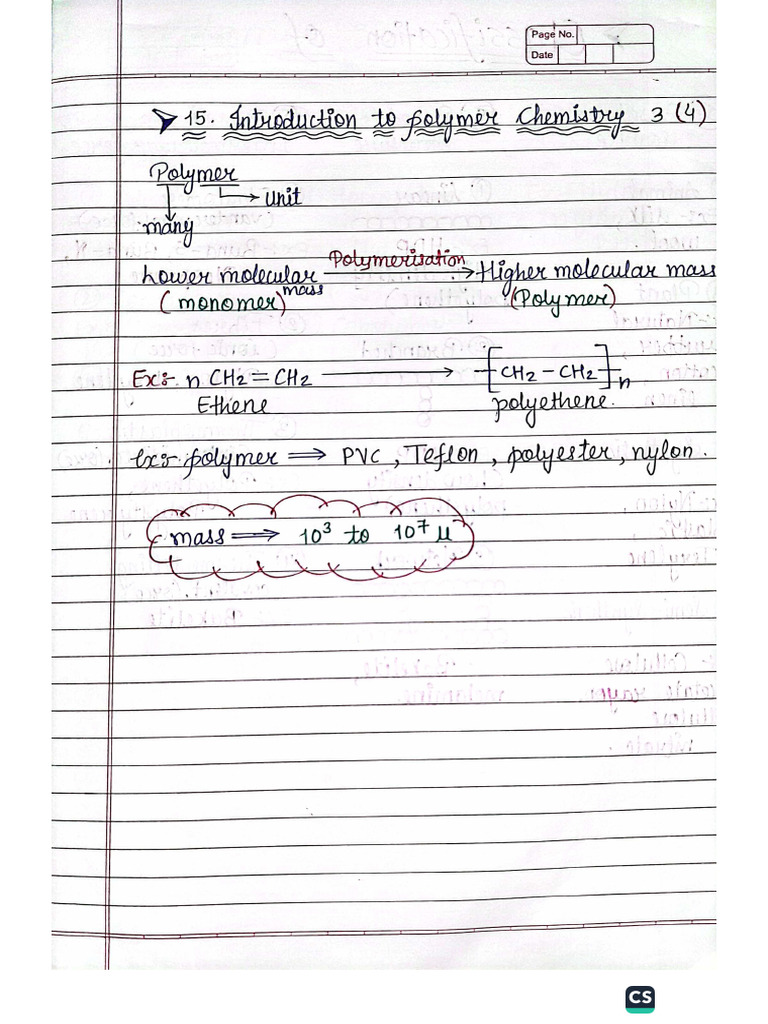 Page No.
Date
15. Introduction to polymer Chemistry 3 (4)
Polymer
→ unit
many
Lower molecular mass Polymerisation → Higher molecular mass
(monomer) (Polymer)
Ex:- n CH2=CH2 → -[CH2-CH2]-n
Ethene polyethene.
Ex:- polymer ⇒ PVC, Teflon, polyester, nylon.
mass ⇒ 10³ to 10⁷ μ
CS